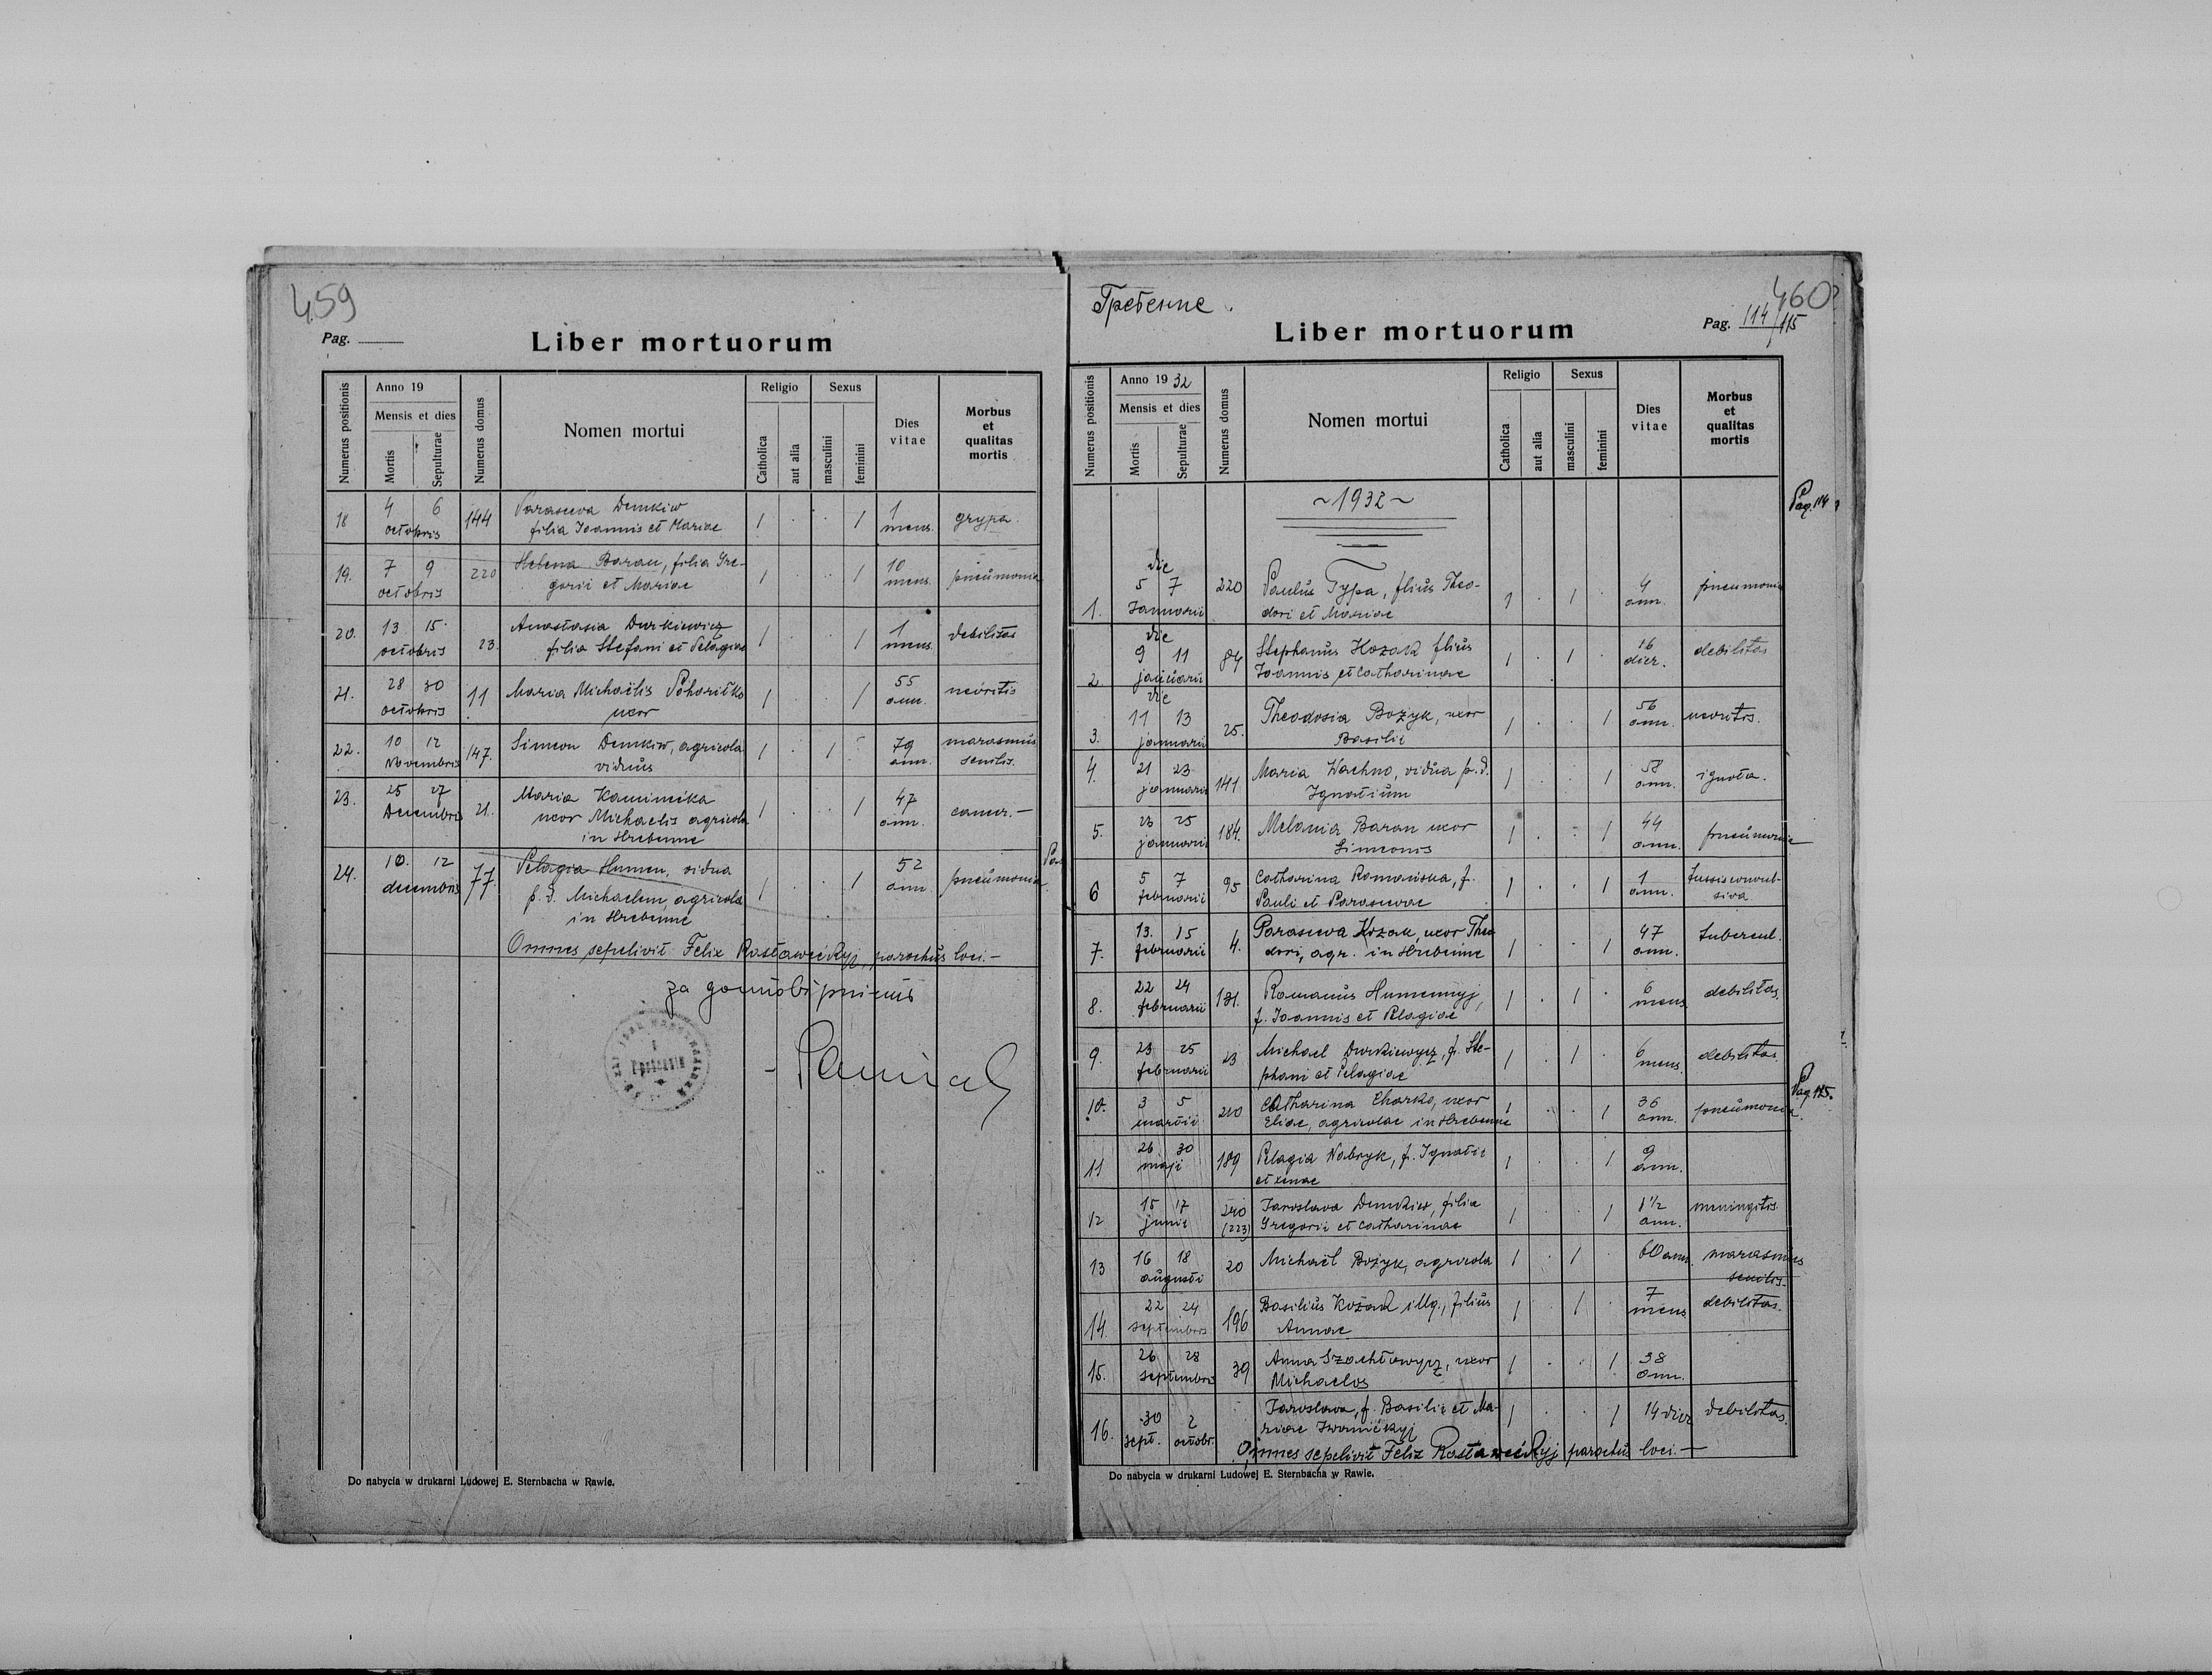 459
Pag.
Liber mortuorum
Numerus positionis
Anno 19
Mensis et dies
Mortis
Sepulturae
Numerus domus
Nomen mortui
Religio
Catholica
aut alia
Sexus
masculini
feminini
Dies vitae
Morbus et qualitas mortis
18 4 6 octobris 144 Parasceva Demkiw 1 . . 1 1 mens. grypa.
filia Joannis et Mariae
19. 7 9 octobris 220 Helena Baran, filia Gre- 1 . . 1 10 mens. pneumonia
gorii et Mariae
20. 13 15 octobris 23. Anastasia Durkiewicz 1 . . 1 1 mens. debilitas
filia Stefani et Pelagiae
21. 28 30 octobris 11 Maria Michaëlis 1 . . 1 55 ann.
uxor
22. 10 12 Novembris 147. Simeon Demkiw, agricola 1 . 1 . 79 ann. marasmus
viduus senilis.
23. 25 27 Decembris 21. Maria 1 . . 1 47 ann. cancer. —
uxor Michaelis agricola
in Hrebenne
24. 10. 12 decembris 77. Pelagia Humen, vidua 1 . . 1 52 ann. pneumonia
p. d. Michaelem, agricola
in Hrebenne
Omnes sepelivit Felix Rastawećkyj, parochus loci. —
за
Do nabycia w drukarni Ludowej E. Sternbacha w Rawie.
Гребенне.
460
Pag. 114/115
Liber mortuorum
Numerus positionis
Anno 1932
Mensis et dies
Mortis
Sepulturae
Numerus domus
Nomen mortui
Religio
Catholica
aut alia
Sexus
masculini
feminini
Dies vitae
Morbus et qualitas mortis
~1932~
Pag. 114
1. die 5 7 Januarii 220 Paulus Typa, filius Theo- 1 . 1 . 4 ann. pneumonia
dori et Mariae
2. die 9 11 januarii 84 Stephanus Kozak filius 1 . 1 . 16 dier. debilitas
Joannis et Catharinae
3. die 11 13 januarii 25. Theodosia Bożyk, uxor 1 . . 1 56 ann.
Basilii
4. 21 23 januarii 141 Maria Wachno, vidua p. d. 1 . . 1 58 ann. ignota.
Ignatium
5. 23 25 januarii 184. Melania Baran uxor 1 . . 1 44 ann. pneumonia
Simeonis
6 5 7 februarii 95 Catharina Romaniska, f. 1 . . 1 1 ann. tussis convul-
Pauli et Parascevae siva
7. 13. 15 februarii 4. Parasceva Kozak, uxor Theo 1 . . 1 47 ann. tubercul.
dori, agr. in Hrebenne
8. 22 24 februarii 131. Romanus Humennyj, 1 . 1 . 6 mens. debilitas.
f. Joannis et Pelagiae
9. 23 25 februarii 23 Michael Durkiewycz, f. Ste- 1 . 1 . 6 mens. debilitas.
phani et Pelagiae
Pag. 115.
10. 3 5 martii 210 Catharina Charko, uxor 1 . . 1 36 ann. pneumonia.
Eliae, agricolae in Hrebenne
11 26 30 maji 189 Pelagia Wabryk, f. Ignatii 1 . . 1 9 ann.
et Xenae
12 15 17 junii 240 (223) Jaroslava Demkiw, filia 1 . . 1 1 1/2 ann. meningitis.
Gregorii et Catharinae
13 16 18 augusti 20 Michaël Bożyk, agricola 1 . 1 . 60 ann. marasmus
senilis.
14. 22 24 septembris 196 Basilius Kozak illg., filius 1 . 1 . 7 mens. debilitas.
Annae
15. 26 28 septembris 39 Anna Szachłowycz, uxor 1 . . 1 38 ann.
Michaelos
16. 30 sept. 2 octobr. Jaroslava, f. Basilii et Ma- 1 . . 1 14 dier debilitas.
riae Iwanićkyj
Omnes sepelivit Felix Rastawećkyj parochus loci. —
Do nabycia w drukarni Ludowej E. Sternbacha w Rawie.